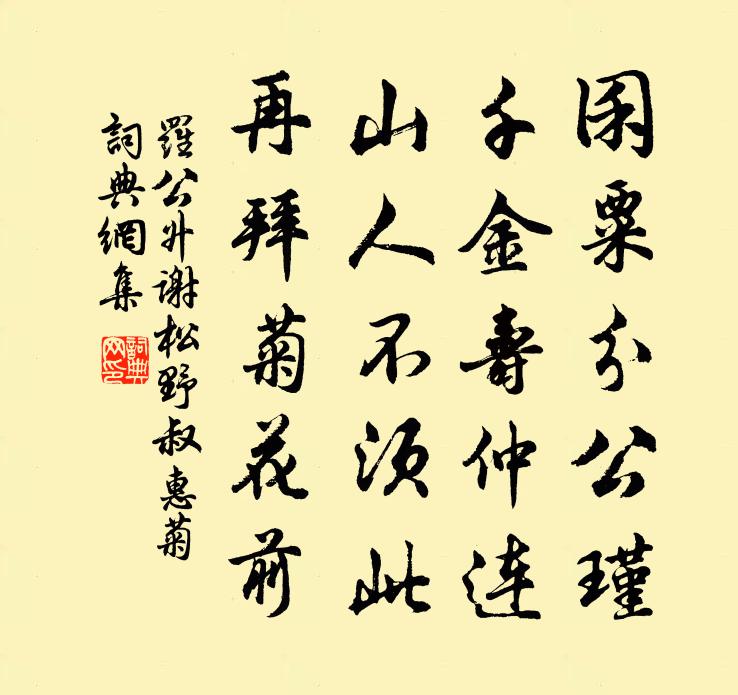 囷粟分公瑾
千金壽仲連
山人不須此
再拜菊花前
羅公升謝松野叔惠菊
詞典網集
詞典网印